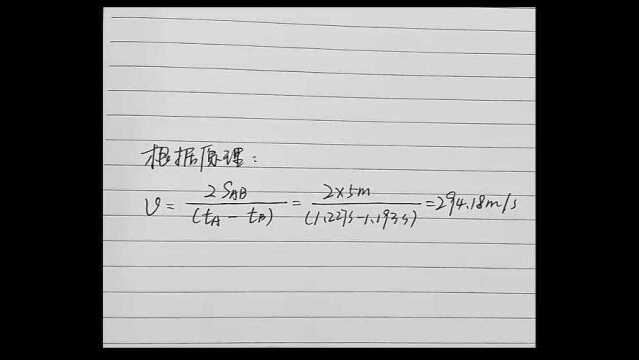 根据原理：
v = 2S_AB / (t_A - t_B) = 2×5m / (1.227s-1.193s) = 294.18m/s